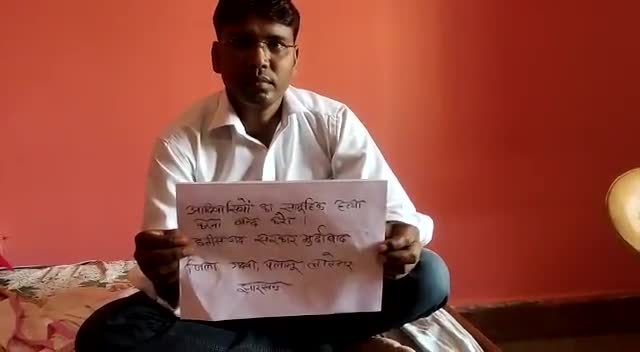 आदिवासियों का सामूहिक हत्या
करना बन्द करो।
छत्तीसगढ़ सरकार मुर्दाबाद
जिला गढ़वा, पलामू लातेहार
झारखण्ड